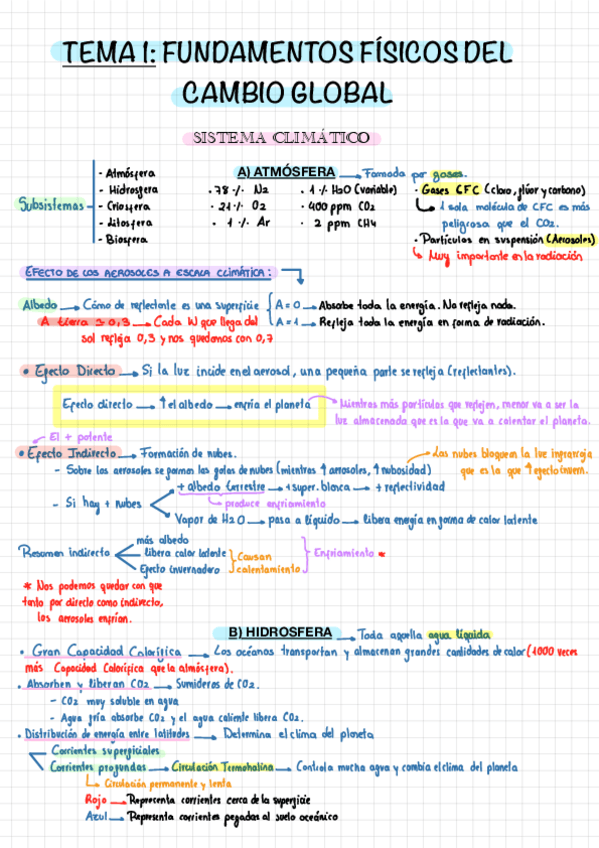 TEMA 1: FUNDAMENTOS FÍSICOS DEL
CAMBIO GLOBAL
SISTEMA CLIMÁTICO
Subsistemas
- Atmósfera
- Hidrosfera
- Criosfera
- Litosfera
- Biosfera
A) ATMÓSFERA → Formada por gases.
· 78 % N2
· 21 % O2
· 1 % Ar
· 1 % H2O (variable)
· 400 ppm CO2
· 2 ppm CH4
· Gases CFC (cloro, flúor y carbono)
↳ 1 sola molécula de CFC es más
peligrosa que el CO2.
· Partículas en suspensión (Aerosoles)
↳ Muy importante en la radiación
EFECTO DE LOS AEROSOLES A ESCALA CLIMÁTICA:
Albedo → Cómo de reflectante es una superficie
A = 0 → Absorbe toda la energía. No refleja nada.
A = 1 → Refleja toda la energía en forma de radiación.
A tierra ≃ 0,3 → Cada W que llega del
sol refleja 0,3 y nos quedamos con 0,7
• Efecto Directo → Si la luz incide en el aerosol, una pequeña parte se refleja (reflectantes).
Efecto directo → ↑ el albedo → enfría el planeta
Mientras más partículas que reflejen, menor va a ser la
luz almacenada que es la que va a calentar el planeta.
El + potente
• Efecto Indirecto → Formación de nubes.
- Sobre los aerosoles se forman las gotas de nubes (mientras ↑ aerosoles, ↑ nubosidad)
Las nubes bloquean la luz infrarroja
que es la que ↑ efecto invern.
- Si hay + nubes
+ albedo terrestre → + super. blanca → + reflectividad
produce enfriamiento
Vapor de H2O → pasa a líquido → libera energía en forma de calor latente
Resumen indirecto
más albedo
libera calor latente
Efecto invernadero
Causan
calentamiento
Enfriamiento *
* Nos podemos quedar con que
tanto por directo como indirecto,
los aerosoles enfrían.
B) HIDROSFERA → Toda aquella agua líquida
• Gran Capacidad Calorífica → Los océanos transportan y almacenan grandes cantidades de calor (1000 veces
más Capacidad Calorífica que la atmósfera).
• Absorben y liberan CO2 → Sumideros de CO2.
- CO2 muy soluble en agua
- Agua fría absorbe CO2 y el agua caliente libera CO2.
• Distribución de energía entre latitudes → Determina el clima del planeta
Corrientes superficiales
Corrientes profundas → Circulación Termohalina → Controla mucha agua y cambia el clima del planeta
↳ Circulación permanente y lenta
Rojo → Representa corrientes cerca de la superficie
Azul → Representa corrientes pegadas al suelo oceánico